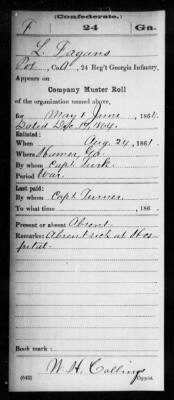 (Confederate.)
F 24 Ga.
L. Fagans
Pvt, Co. A, 24 Reg't Georgia Infantry,
Appears on
Company Muster Roll
of the organization named above,
for May & June, 1864.
Dated Dec. 17, 1864.
Enlisted:
When Aug. 24, 1861.
Where Homer, Ga.
By whom Capt.
Period War.
Last paid:
By whom Capt. Turner.
To what time , 186 .
Present or absent Absent.
Remarks: Absent sick at Hos-
pital.
Book mark:
W. H. Collins
(642) Copyist.